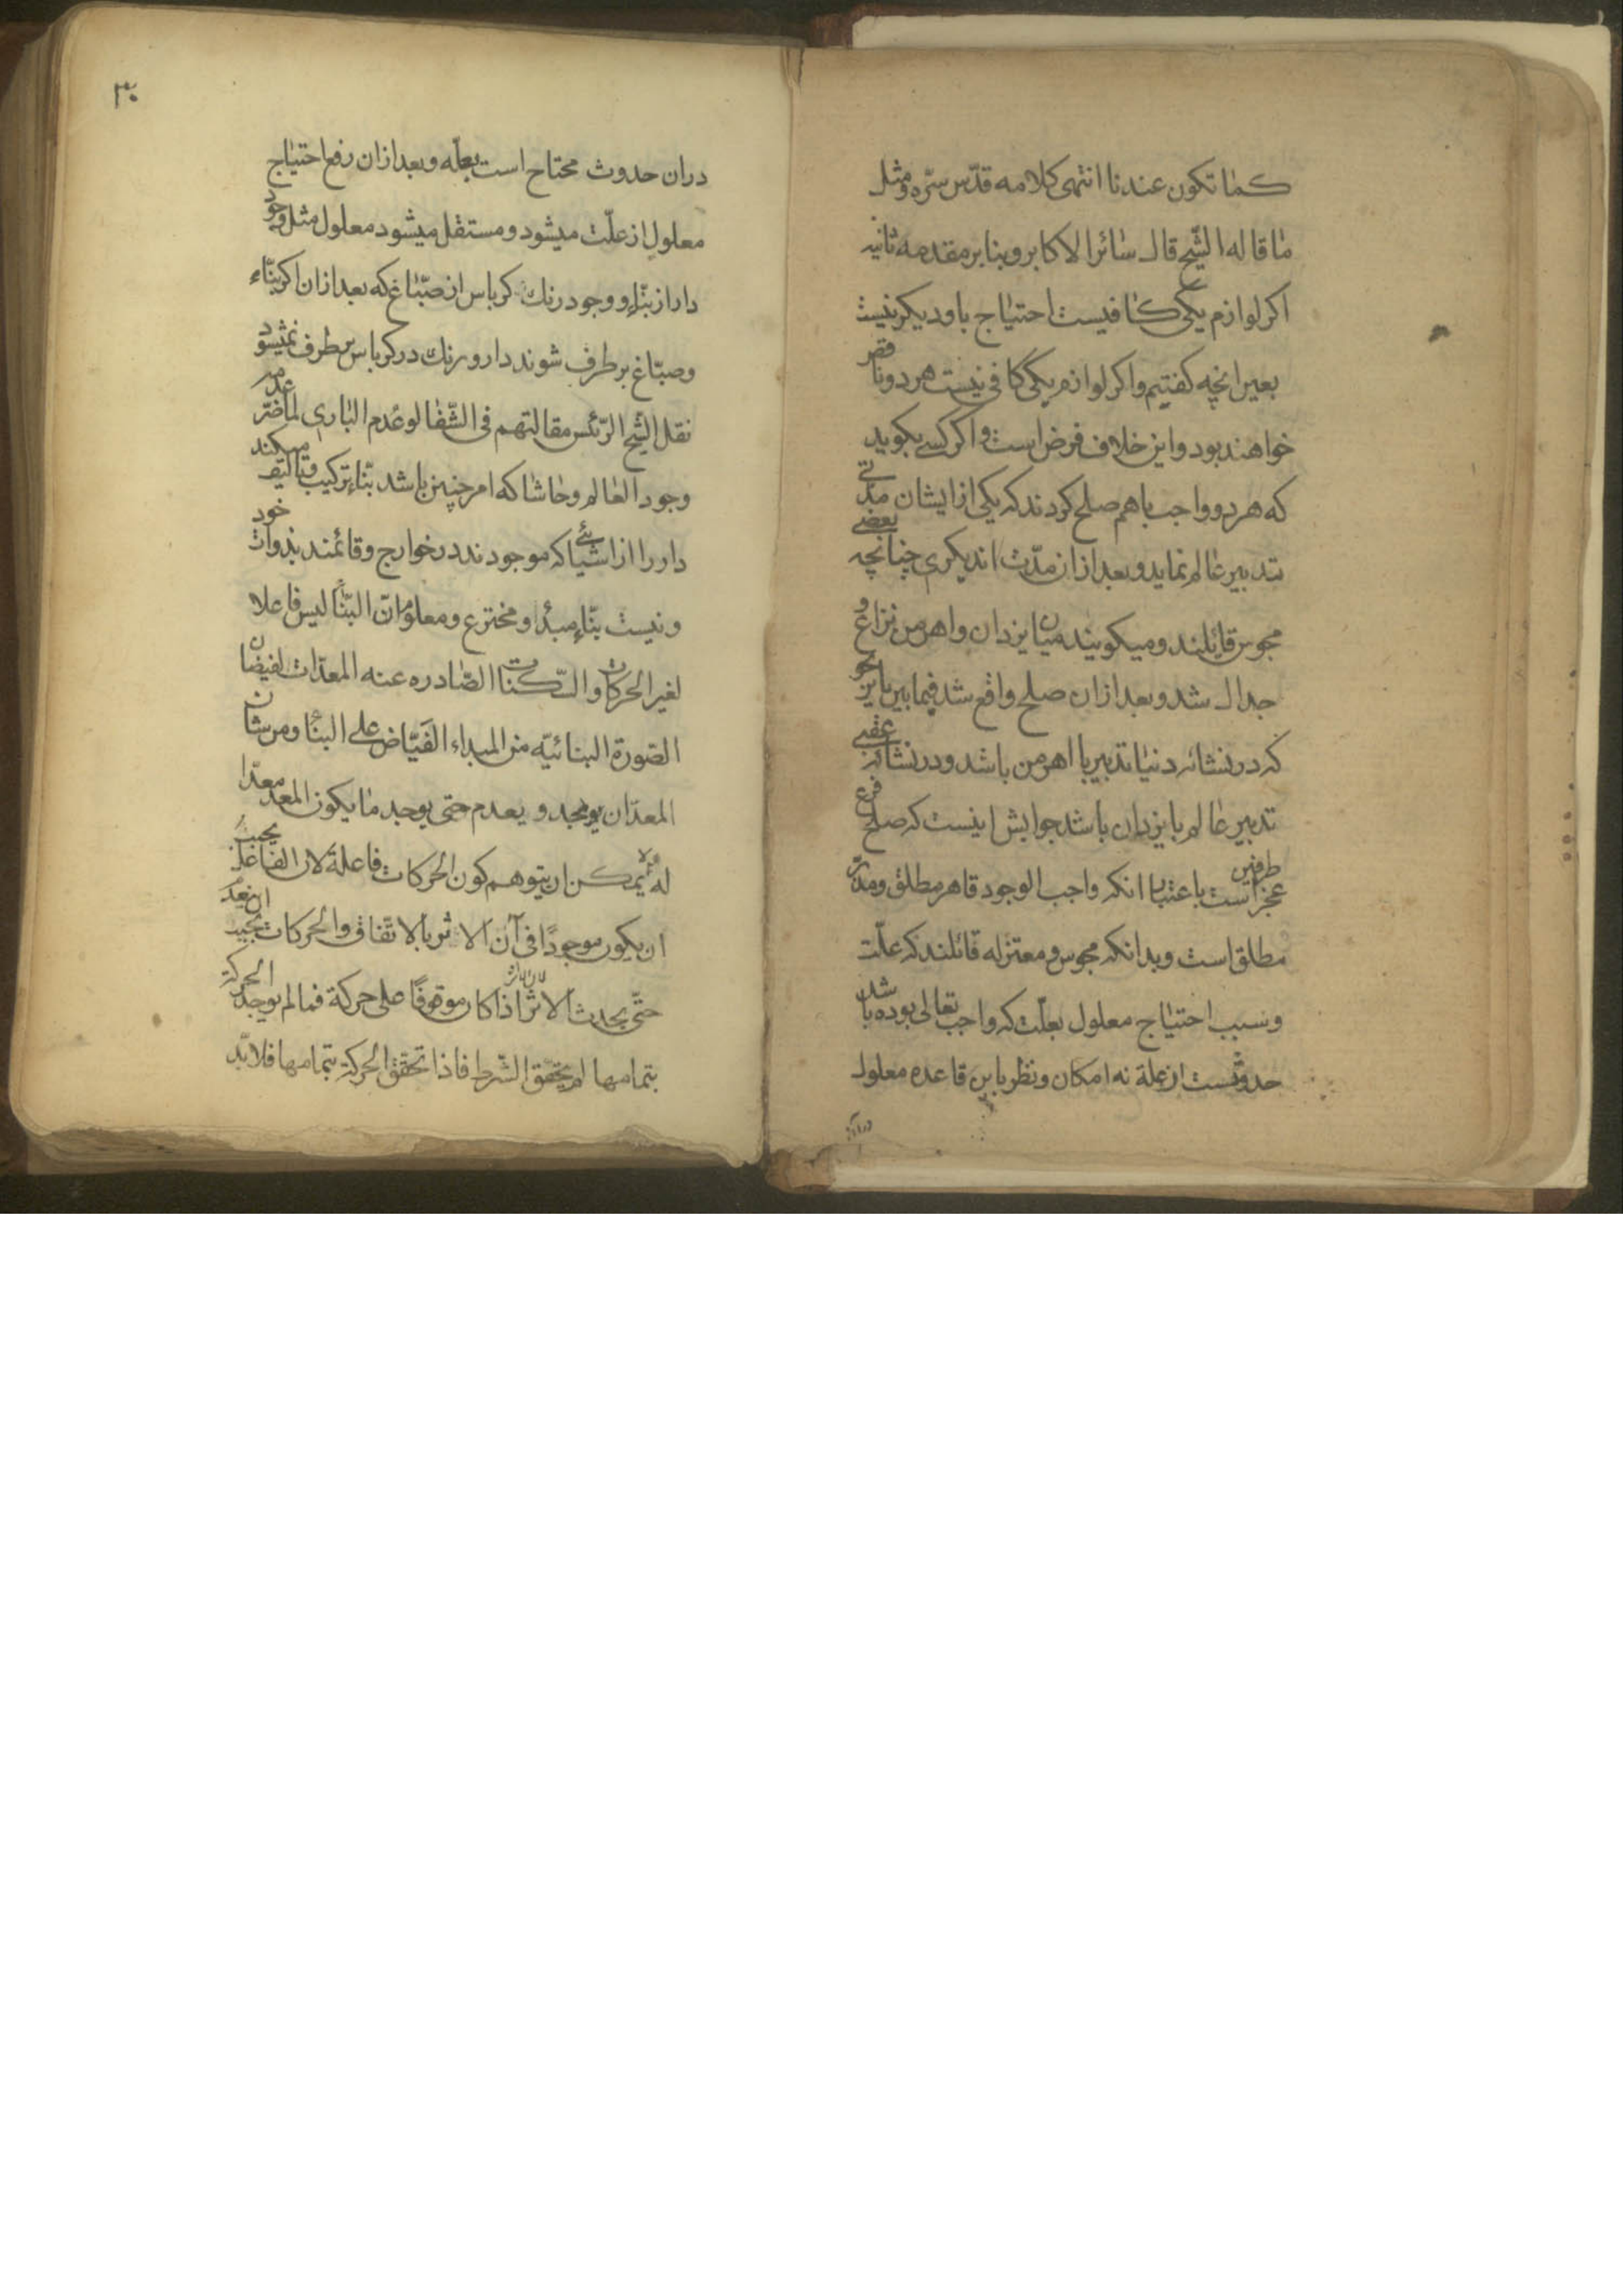 كما تكون عندنا انتهى كلامه قدّس سرّه ومثل
ما قاله الشّيخ قال سائر الاكابر وبنا بر مقدمه ثانيه
اكر لوازم يكى كافيست احتياج باو ديكر نيست
بعين انچه كفتيم واكر لوازم يكى كافى نيست هر دو ناقص
خواهند بود واين خلاف فرض است واكر كسے بكويد
كه هر دو واجب باهم صلح كردند كه يكى از ايشان مدّتے
تدبير عالم نمايد وبعد از ان مدّت اند يكرى چنانچه بعضے
مجوس قايلند وميكويند ميان يزدان واهرمن نزاع و
جدال شد وبعد از ان صلح واقع شد فيما بين باين نحو
كه در نشائه دنيا تدبير با اهرمن باشد ودر نشائه عقبے
تدبير عالم با يزدان باشد جوابش اينست كه صلح فرع
عجز طرفين است باعتبار انكه واجب الوجود قاهر مطلق ومدبّر
مطلق است وبدانكه مجوس ومعتزله قائلند كه علّت
وسبب احتياج معلول بعلّت كه واجب تعالى بوده باشد
حدوثست از علة نه امكان ونظر باين قاعده معلول
در آن
٣٠
در ان حدوث محتاج است بعلّه وبعد از ان رفع احتياج
معلول از علّت ميشود ومستقل ميشود معلول مثل وجود
دار از بنّاء ووجود رنك كرباس از صبّاغ كه بعد از ان اكر بنّاء
وصبّاغ بر طرف شوند دار ورنك در كرباس بر طرف نميشود
نقل الشّيخ الرّئيس مقالتهم فى الشّفا لو عُدم البارى لما ضرّ عدمه
وجود العالم وحاشا كه امر چنين باشد بنّاء تركيب وتاليف ميكند
دار را از اشيائے كه موجودند در خوارج وقائمند بذوات خود
ونيست بنّاء مبدأ ومخترع ومعلوم انّ البنّاء ليس فاعلا
لغير الحركات والسّكنات الصّادره عنه المعدّات لفيضان
الصّورة البنائيّه من المبداء الفيّاض على البناء ومن شان
المعدّ ان يوجد ويعدم حتى يوجد ما يكون المعد معدّا
له ولا يمكن ان يتوهم كون الحركات فاعلة لان الفاعل يجب
ان يكون موجودًا فى آن الاثر بالاتفاق والحركات يجب ان يعدم
حتّى يحدث الاثر لان الاثر اذا كان موقوفًا على حركة فما لم يوجد الحركة
بتمامها لم يتحقّق الشّرط فاذا تحقّق الحركة بتمامها فلا بدّ